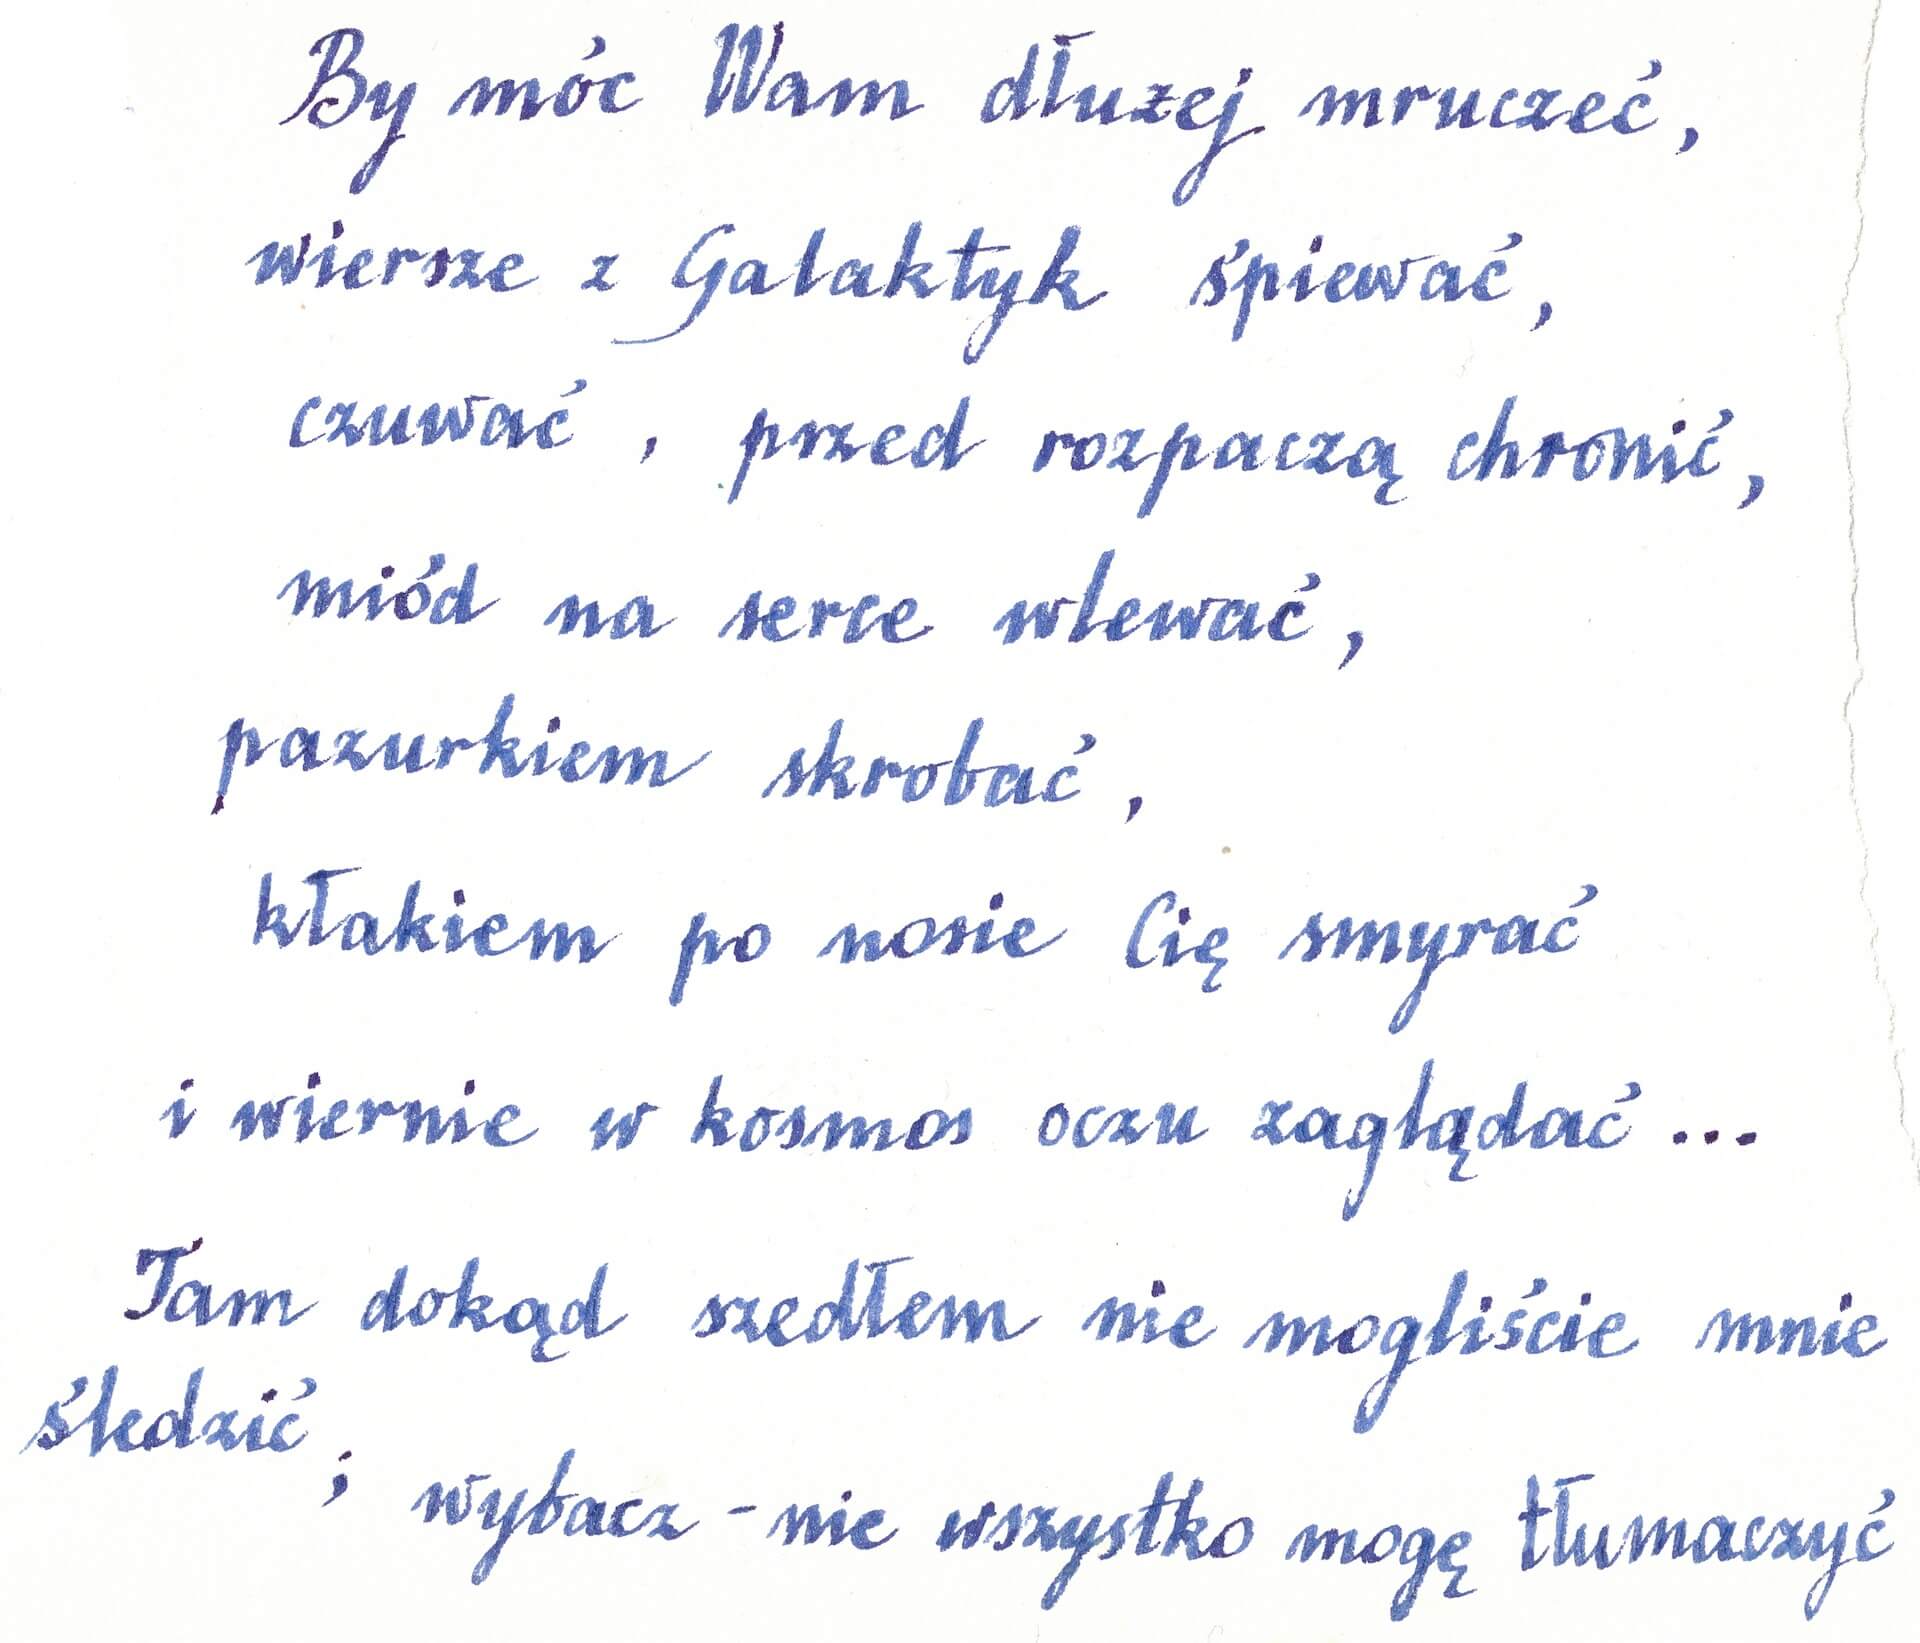 By móc Wam dłużej mruczeć,
wiersze z Galaktyk śpiewać,
czuwać, przed rozpaczą chronić,
miód na serce wlewać,
pazurkiem skrobać,
kłakiem po nosie Cię smyrać
i wiernie w kosmos oczu zaglądać...
Tam dokąd szedłem nie mogliście mnie
śledzić;
wybacz - nie wszystko mogę tłumaczyć